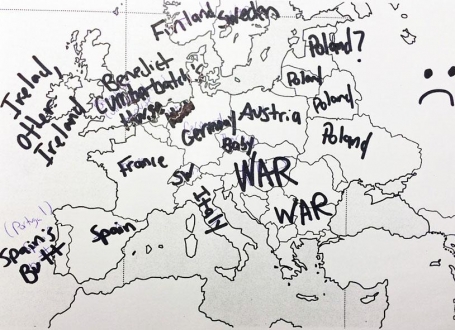 Finland
Sweden
Poland?
Irelad,
Other
Ireland
Benedict
Cumberbatch's
House
Poland
Poland
Germany
Austria
Baby
Poland
France
SW
WAR
Italy
WAR
(Portugal)
Spain's
Butt
Spain